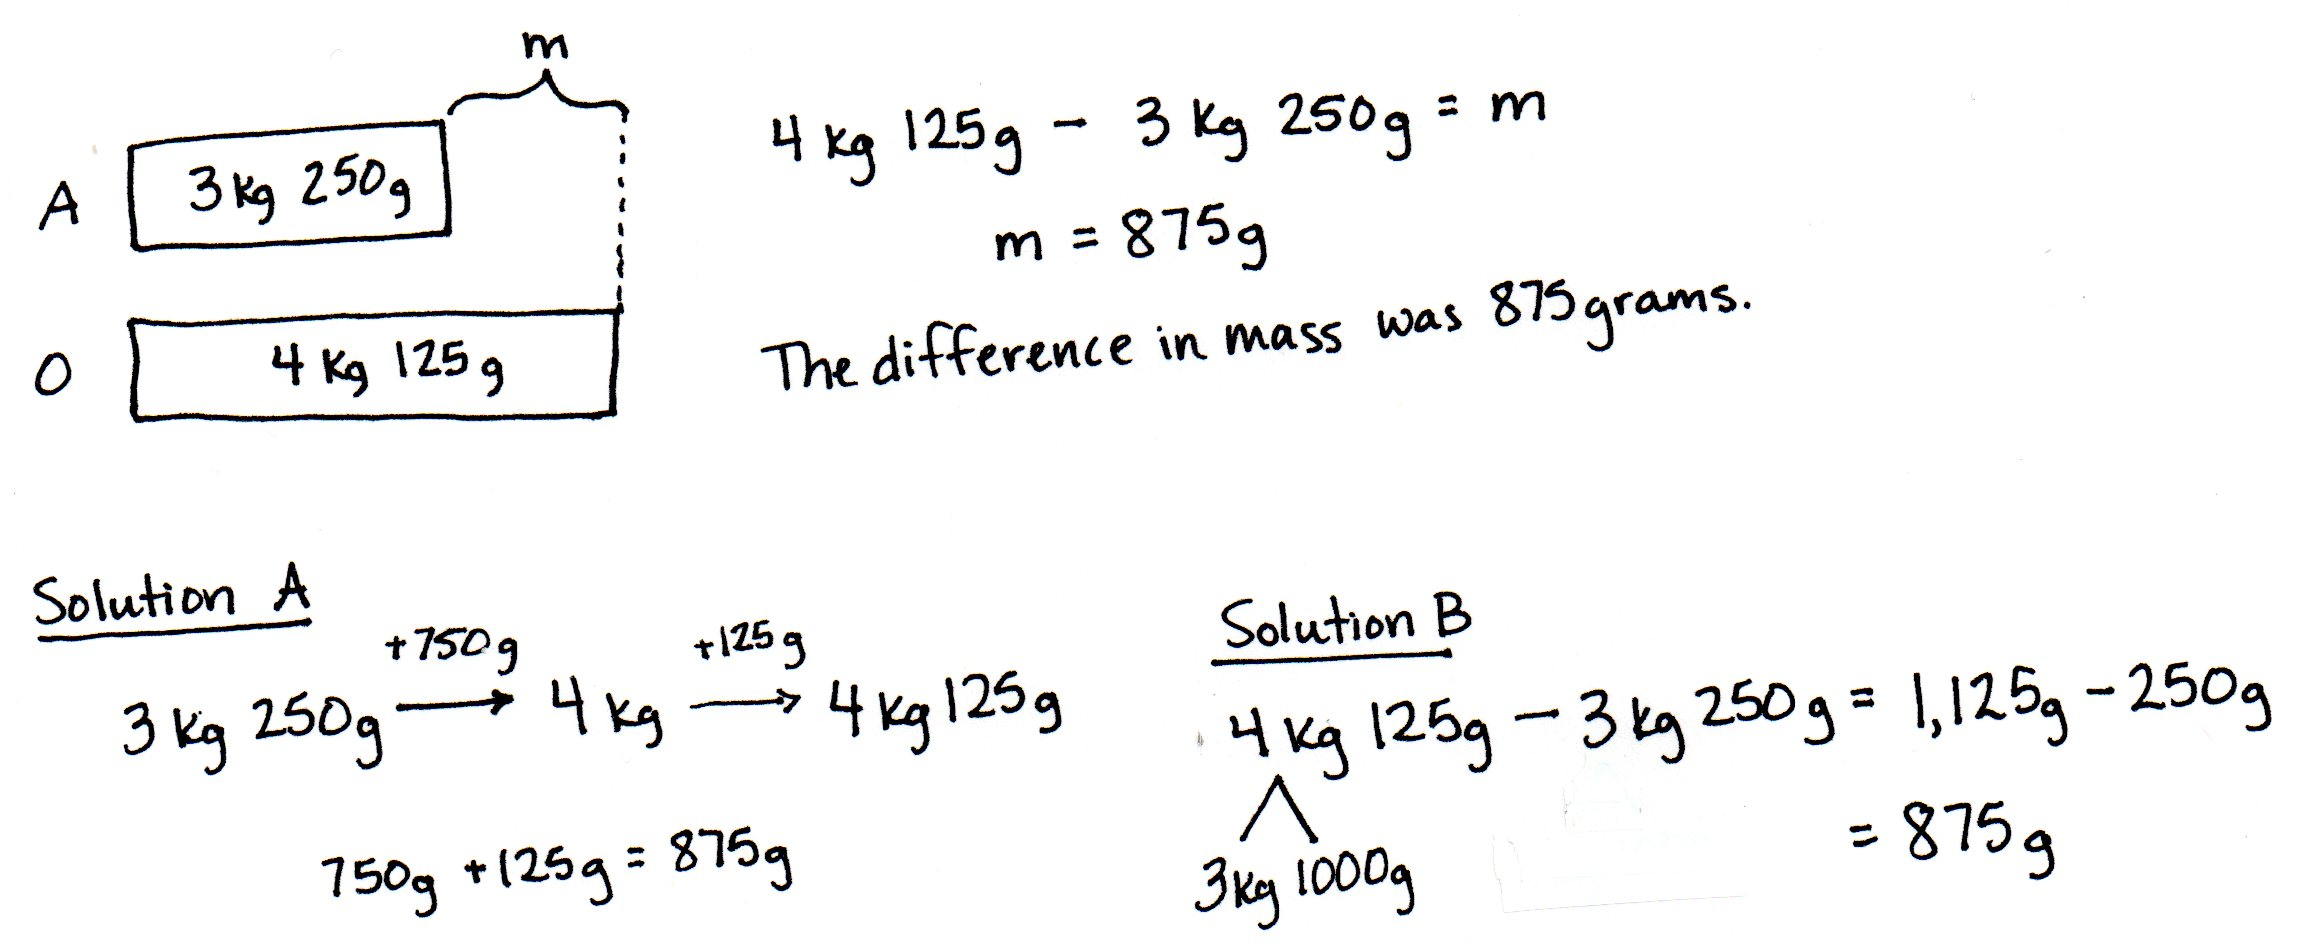 m
A 3 kg 250g
O 4 kg 125g
4 kg 125g - 3 kg 250g = m
m = 875g
The difference in mass was 875 grams.
Solution A
+750g +125g
3 kg 250g → 4 kg → 4 kg 125g
750g + 125g = 875g
Solution B
4 kg 125g - 3 kg 250g = 1,125g - 250g
3kg 1000g
= 875g